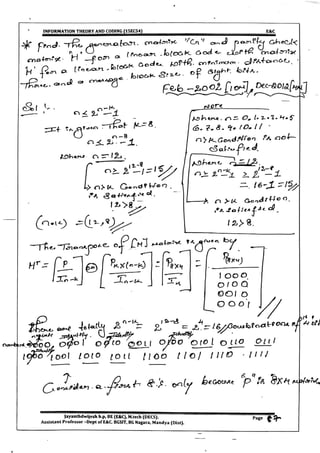 INFORMATION THEORY AND CODING (15EC54) E&C
* Find The generator matrix "G" and parity check
matrix 'H' for a linear block code with minimum distance
three and a message block size of eight bits.
Feb-2002 [10M], Dec-2012 [
Sol :-
n ≤ 2^{n-k} - 1
It is given that k = 8.
n ≤ 2^{n-8} - 1
when n = 12.
n ≥ 2^{12-8} - 1 = 15
n > k Condition
is satisfied
12 > 8.
(n, k) = (12, 8)
Note
when n = 0, 1, 2, 3, 4, 5
6, 7, 8, 9, 10, 11
n > k condition is not
satisfied.
when n = 12
= 16 - 1 = 15
n > k condition
is satisfied.
12 > 8.
The Transpose of [H] matrix is given by
H^T = [P / I_{n-k}] = [P_{k×(n-k)} / I_{n-k}] = [P_{8×4} / I_4] = [P_{8×4}]
1 0 0 0
0 1 0 0
0 0 1 0
0 0 0 1
There are totally 2^{n-k} = 2^{12-8} = 2^4 = 16 combinations of
0000, 0001 0010 0011 0100 0101 0110 0111
1000 1001 1010 1011 1100 1101 1110 1111
Consider a first 8's only because "P" is 8×4 matrix
Jayanthdwijesh h.p, BE (E&C), M.tech (DECS).
Assistant Professor –Dept of E&C, BGSIT, BG Nagara, Mandya (Dist).
Page